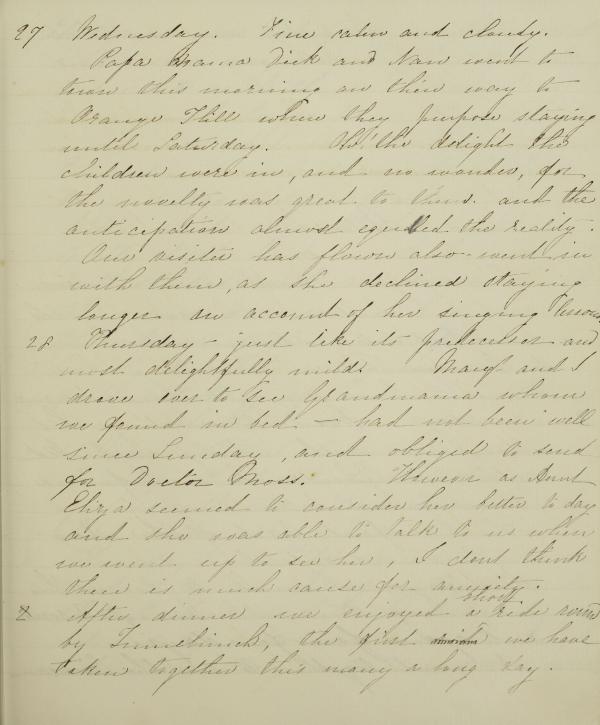 27 Wednesday. Fine calm and cloudy.
Papa Mama Dick and Nan went to
town this morning on their way to
Orange Hill where they purpose staying
until Saturday. Oh! the delight the
children were in, and no wonder, for
the novelty was great to them. and the
anticipation almost equalled the reality.
Our visiter has flown also - went in
with them, as she declined staying
longer on account of her singing lesson
28 Thursday - just like its predecessor and
most delightfully mild. and I
drove over to see Grandmama whom
we found in bed - had not been well
since Sunday, and obliged to send
for Doctor Moss. However as Aunt
Eliza seemed to consider her better to day
and she was able to talk to us when
we went up to see her, I dont think
there is much cause for anxiety.
After dinner we enjoyed a short ride round
by the first we have
taken together this many a long day.